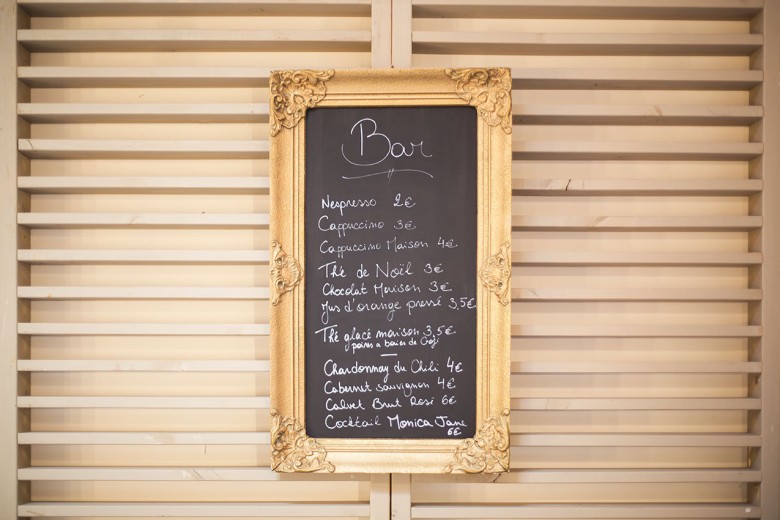 Bar
Nespresso 2€
Cappuccino 3€
Cappuccino Maison 4€
Thé de Noël 3€
Chocolat Maison 3€
Jus d'orange pressé 3,5€
Thé glacé maison 3,5€
poires a baies de Goji
Chardonnay du Chili 4€
Cabernet sauvignon 4€
Calvet Brut Rosé 6€
Cocktail Monica Jane
6€